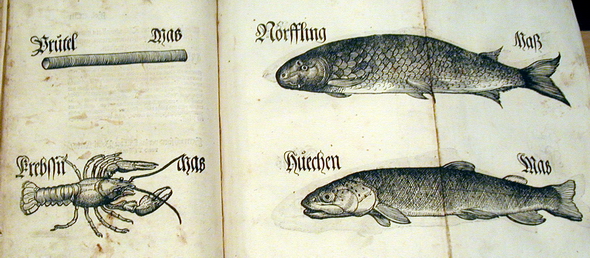 Prütel Mas
Krebssn Mas
Nörffling Maß
Huechen Mas